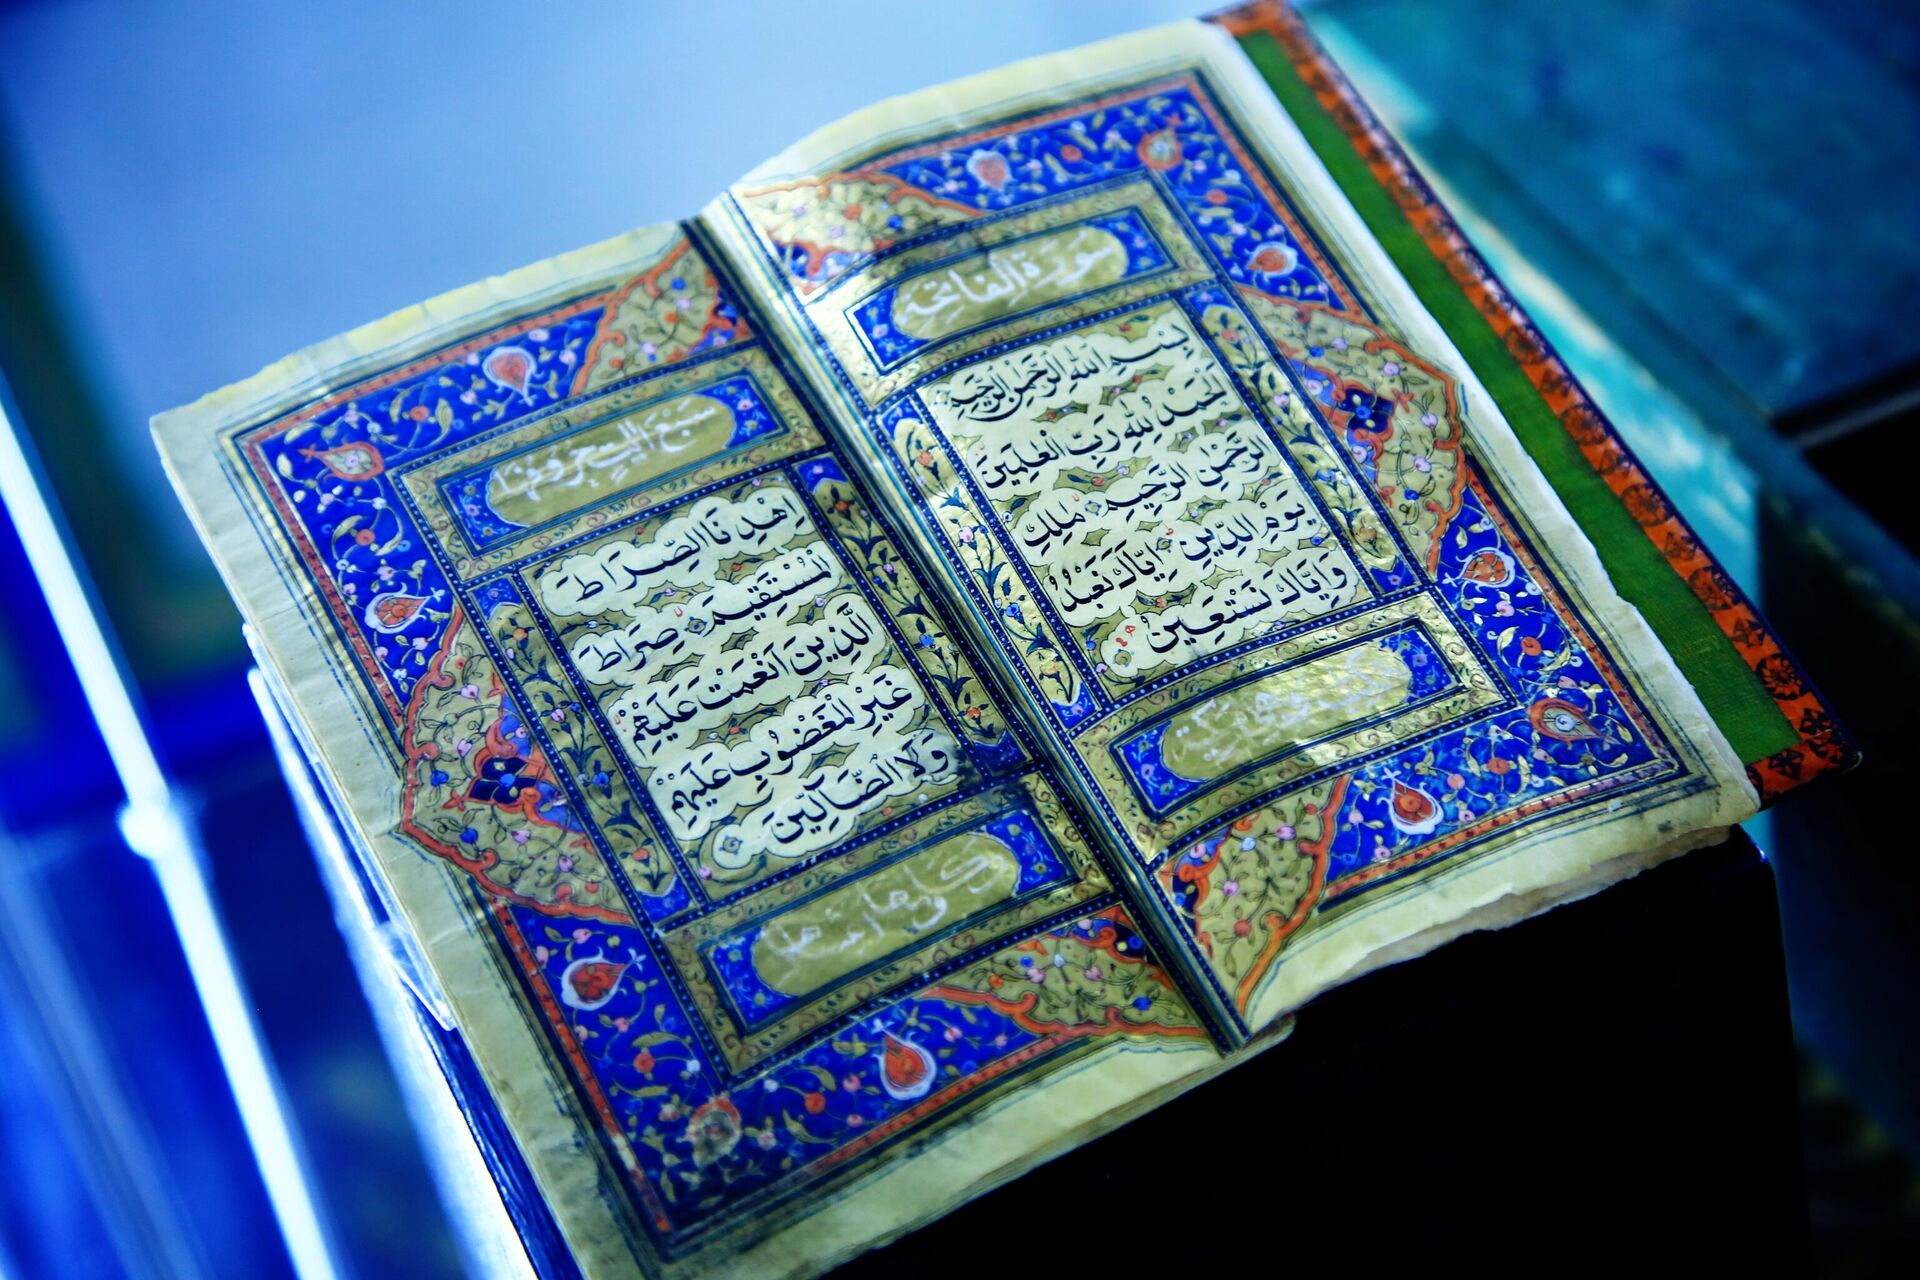 سورة الفاتحة
بِسْمِ اللهِ الرَّحْمٰنِ الرَّحِيمِ
اَلْحَمْدُ لِلّٰهِ رَبِّ الْعٰلَمِينَ
الرَّحْمٰنِ الرَّحِيمِ مٰلِكِ
يَوْمِ الدِّينِ اِيَّاكَ نَعْبُدُ
وَاِيَّاكَ نَسْتَعِينُ
سبع
اِهْدِنَا الصِّرَاطَ
الْمُسْتَقِيمَ صِرَاطَ
الَّذِينَ اَنْعَمْتَ عَلَيْهِمْ
غَيْرِ الْمَغْضُوبِ عَلَيْهِمْ
وَلَا الضَّالِّينَ